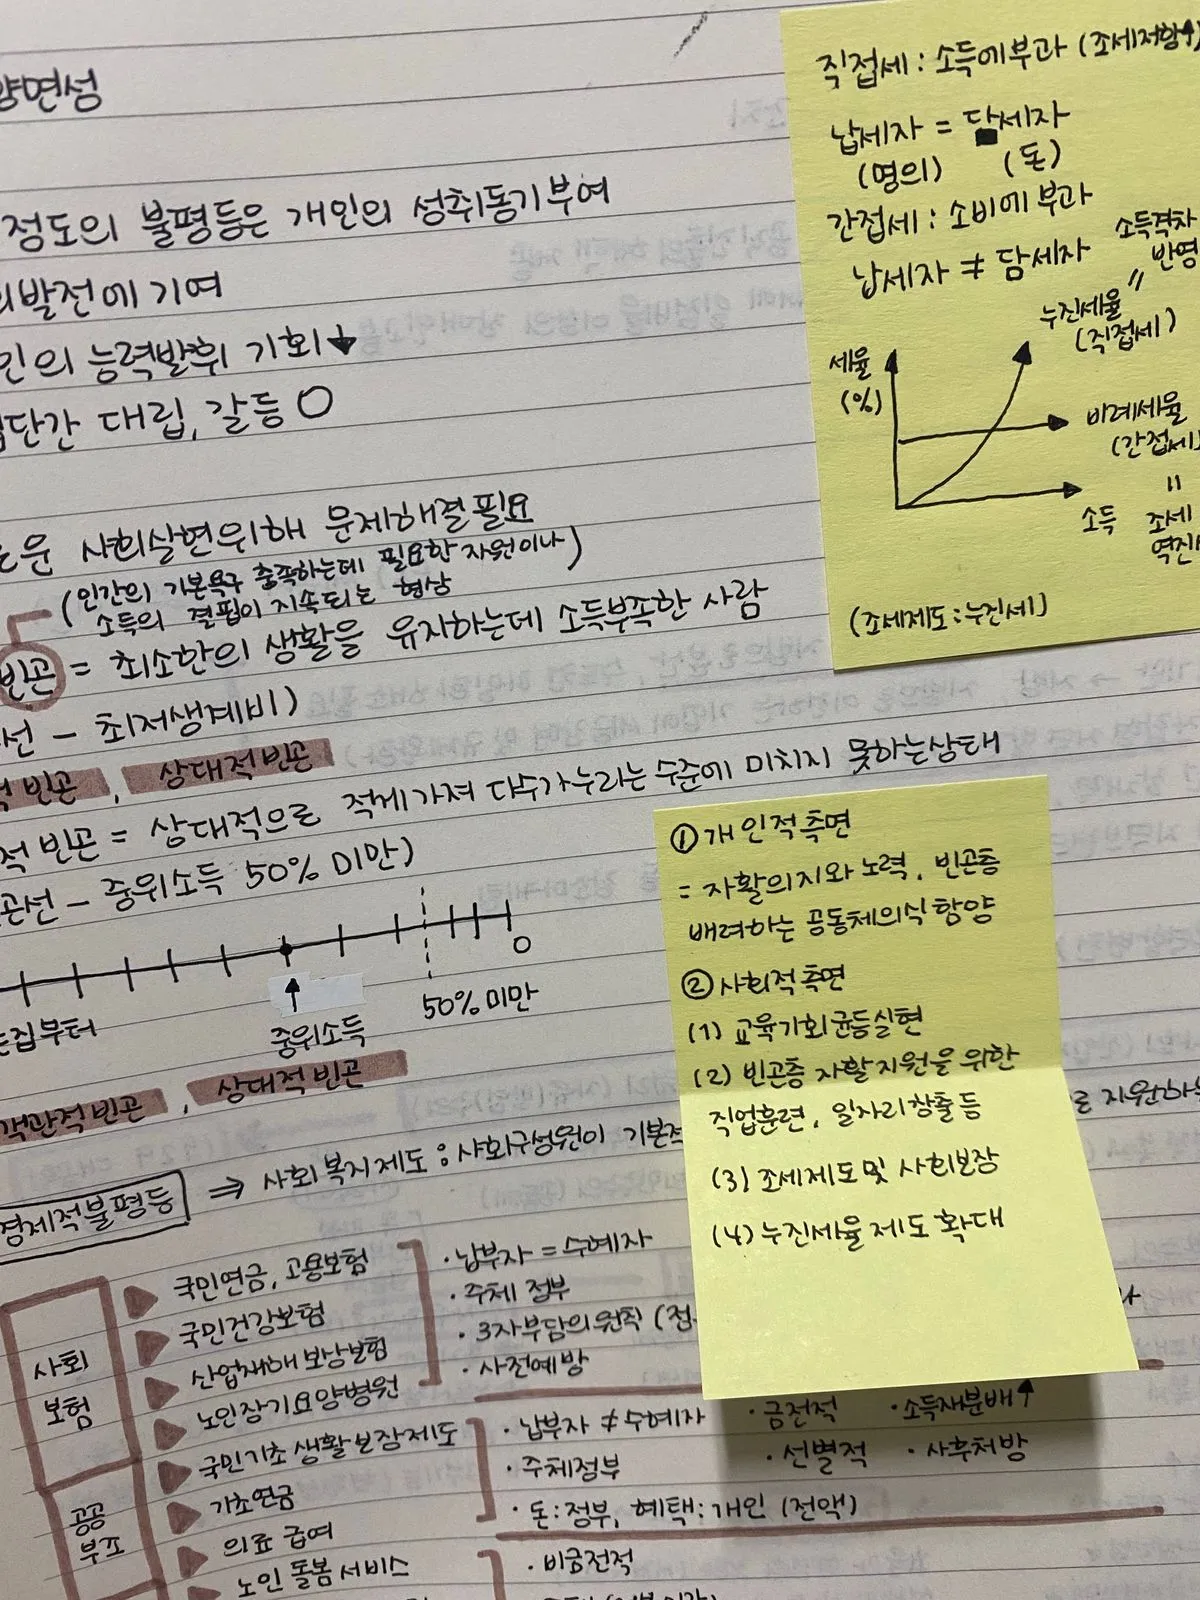 양면성
정도의 불평등은 개인의 성취동기부여
발전에 기여
인의 능력발휘 기회↓
집단간 대립, 갈등 O
사회실현위해 문제해결 필요
(인간의 기본욕구 충족하는데 필요한 자원이나)
소득의 결핍이 지속되는 현상
빈곤 = 최소한의 생활을 유지하는데 소득부족한 사람
선 - 최저생계비)
적 빈곤, 상대적 빈곤
적 빈곤 = 상대적으로 적게가져 다수가누리는수준에 미치지 못하는상태
곤선 - 중위소득 50% 미만)
0
집부터
중위소득
50%미만
객관적빈곤, 상대적 빈곤
경제적불평등 ⇒ 사회 복지 제도 : 사회구성원이 기본적
로 지원하는
사회
보험
국민연금, 고용보험
국민건강보험
산업재해 보상보험
노인장기요양병원
·납부자 = 수혜자
·주체 정부
·3자부담의 원칙
·사전예방
공공
부조
국민기초 생활보장제도
기초연금
의료 급여
·납부자 ≠ 수혜자 ·금전적 ·소득재분배↑
·주체정부 ·선별적 ·사후처방
·돈:정부, 혜택:개인 (전액)
노인 돌봄 서비스
·비금전적
직접세 : 소득에부과 (조세저항↑)
납세자 = 담세자
(명의) (돈)
간접세 : 소비에 부과
납세자 ≠ 담세자
소득격차
반영
=
누진세율
(직접세)
세율
(%)
비례세율
(간접세)
=
소득
조세
역진
(조세제도:누진세)
① 개인적측면
= 자활의지와 노력, 빈곤층
배려하는 공동체의식 함양
② 사회적측면
(1) 교육기회균등실현
(2) 빈곤층 자활지원을 위한
직업훈련, 일자리창출 등
(3) 조세제도및 사회보장
(4) 누진세율 제도 확대